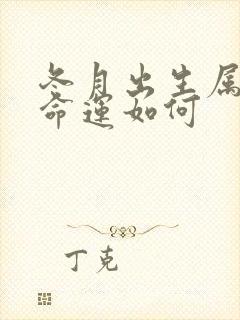 冬月出生属
命运如何
丁克